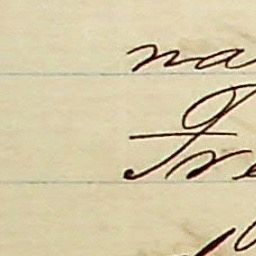 na
Fre